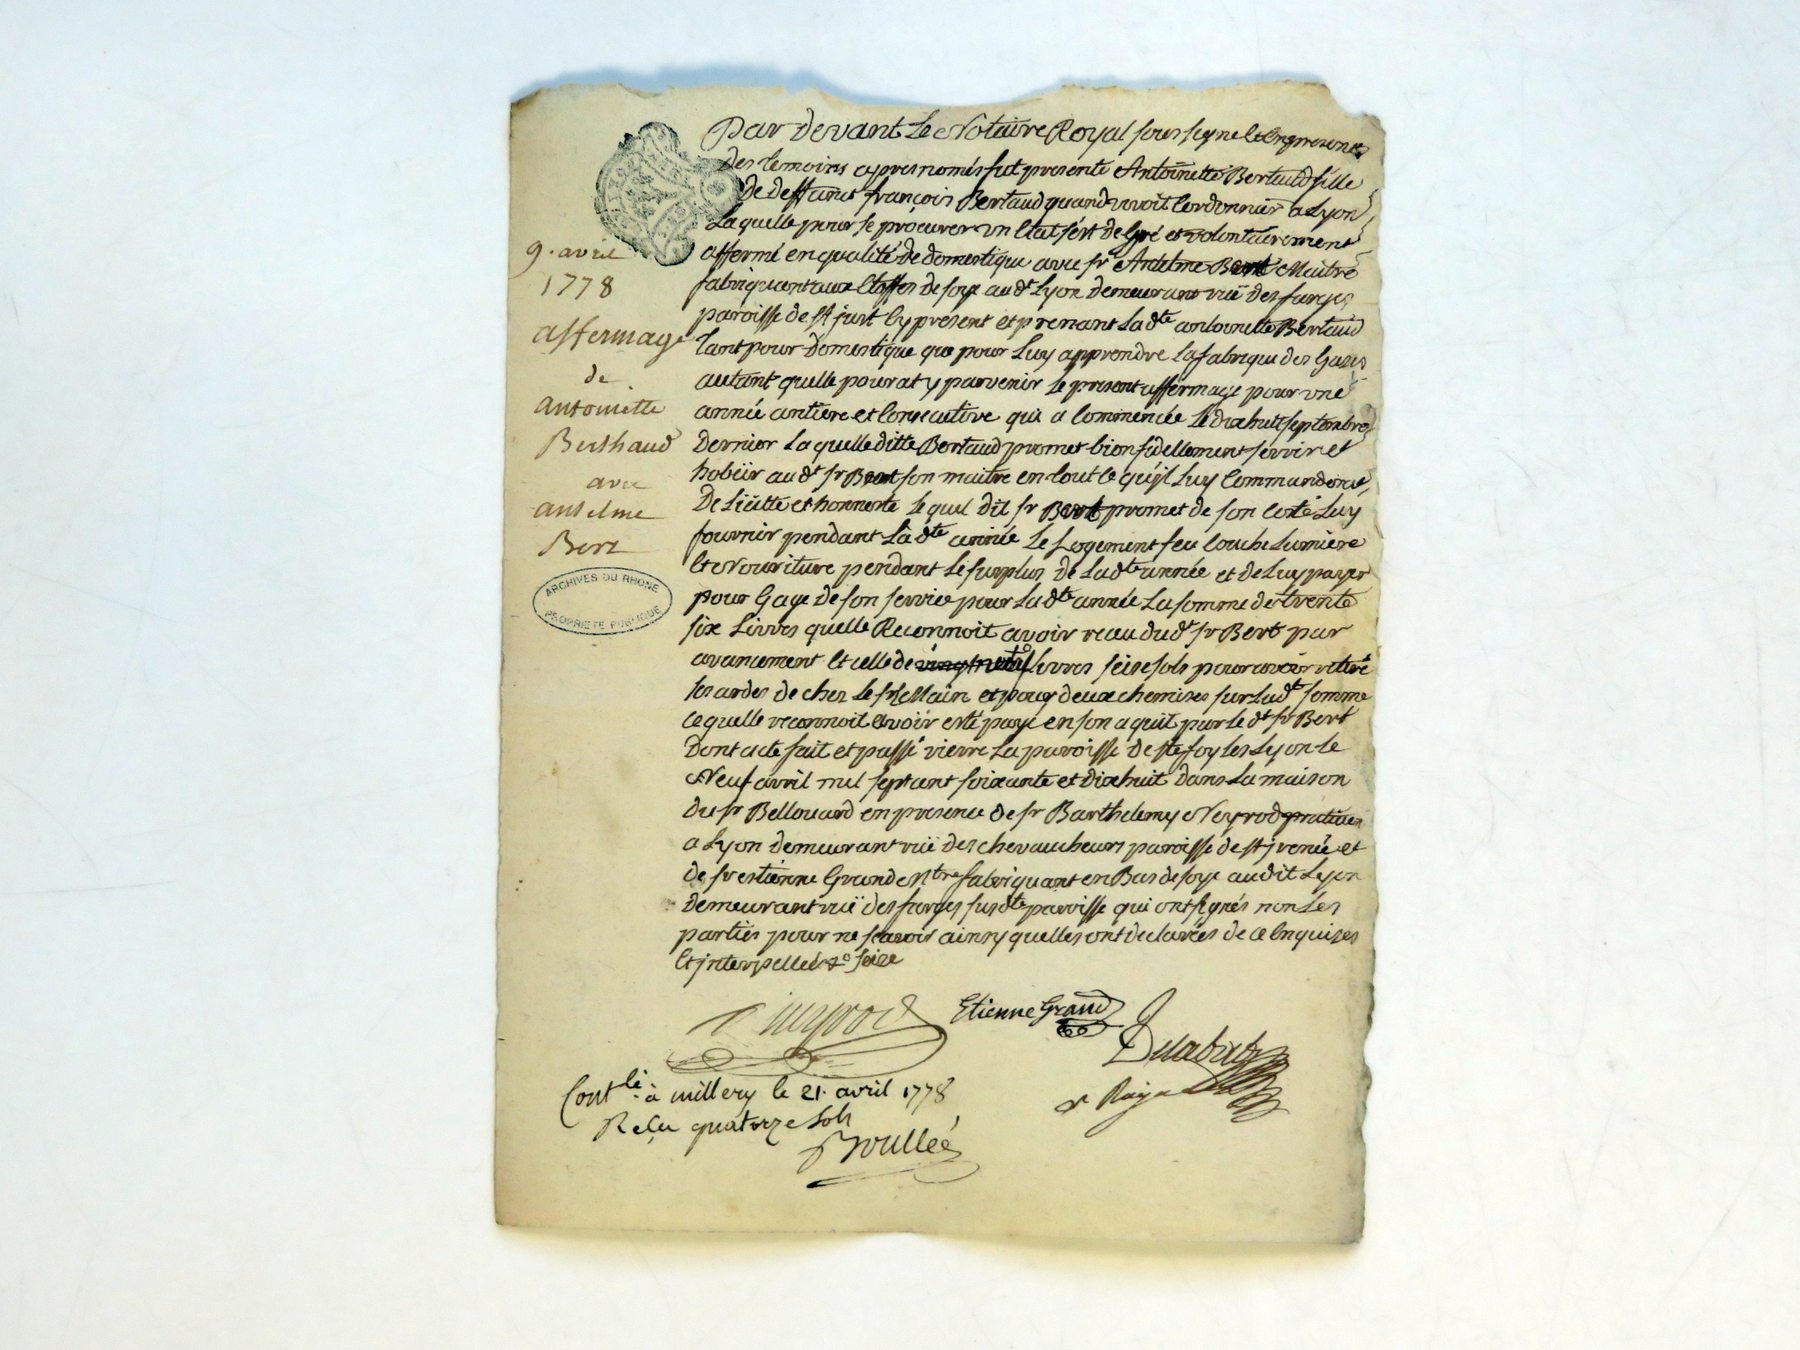 Par devant Le Notaire Royal sous signé et En presence
des temoins apres només fut presente Antoinette Bertaud fille
de deffunt françois Bertaud quand vivoit Cordonnier a Lyon
Laquelle pour se procurer un Etat s'est de Gré et volontairement
affermé en qualité de domestique avec sr Antelme Bert Maitre
fabriquant aux Etoffes de soye au dt Lyon demeurant ruë des farges
paroisse de st just Cy présent et prenant Ladte antoinette Bertaud
tant pour domestique que pour Luy apprendre La fabrique des Gazes
autant quelle pourat y parvenir Le present affermage pour une
année antiere et Consecutive qui a Commencée Le dixhuit septembre
dernier Laquelle ditte Bertaud promet bien fidellement servir et
hobeïir audt sr Bert son maitre en tout Ce qu'jl Luy Commandera
De Liütte et honneste Lequel dit sr Bert promet de son Costé Luy
fournir pendant Ladte année Le Logement feu Couche Lumiere
Et Nouriture pendant Le surplus de Ladte année et de Luy payer
pour Gage de son service pour Ladte année La somme de trente
six Livres quelle Reconnoit avoir recu dudt sr Bert par
avancement Et celle de Livres seise sols pour avoir retiré
ses ardes de chez Le sr Main et pour deux chemises sur Ladt somme
Ce quelle reconnoit avoir esté payé en son aquit par le dt sr Bert
Dont acte fait et passé vierre La paroisse de ste foy les Lyon le
Neuf avril mil septcent soixante et Dixhuit dans La maison
du sr Bellouard en presence de sr Barthelemy Neyrod praticien
a Lyon demeurant ruë des chevaucheurs paroisse de st jrenée et
de sr estienne Grand Mtre fabriquant en Bas de soye audit Lyon
demeurant ruë des farges susdte paroisse qui ont signés non Les
parties pour ne scavoir ainsy quelles ont declarées de ce Enquises
Et jnterpellées seize
9. avril
1778
affermage
de
antoinette
Berthaud
avec
anselme
Bert
ARCHIVES DU RHONE
PROPRIETE PUBLIQUE
Neyrod
Etienne Grand
Contlé à millery le 21. avril 1778
Reçu quatorze sols
Boullée